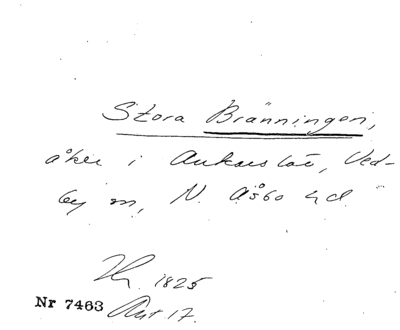 Stora Bränningen,
åker i Ankarslöv, Ved-
by sn, N. Åsbo hd.
1825
Nr 7463 Akt 17.